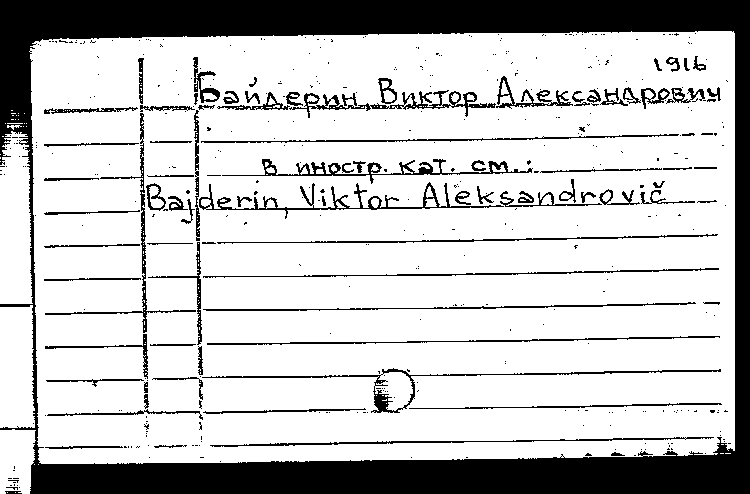 1916
Байдерин, Виктор Александрович
в иностр. кат. см.:
Bajderin, Viktor Aleksandrovič